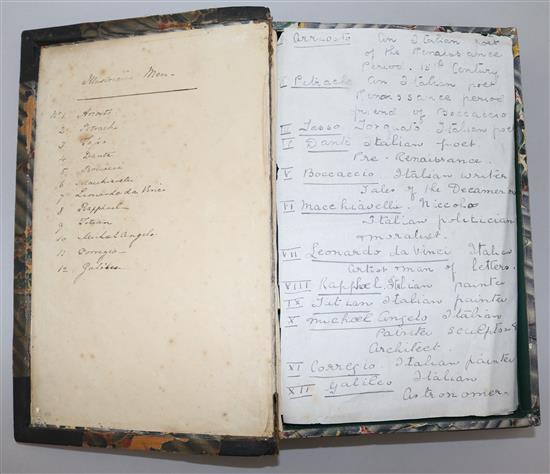 Illustrious Men -
No 1 Ariosto
2 Petrach
3 Tasso
4 Dante
5 Boccacio
6 Macchiavelli
7 Leonardo da Vinci
8 Rapphael
9 Titian
10 Michel Angelo
11 Corregio
12 Galileo
I Arriosto An Italian Poet
of the Renaissance
Period. 15th Century
II Petrach An Italian poet
Renaissance period
friend of Boccaccio
III Tasso Torquato Italian poet
IV Dante Italian poet
Pre-Renaissance.
V Boccaccio. Italian writer
Tales of the Decameron
VI Macchiavelli. Niccolo
Italian politician
moralist.
VII Leonardo da Vinci Italian
Artist man of letters.
VIII Rapphael. Italian painter
IX Titian Italian painter
X Michael Angelo Italian
Painter sculptor &
Architect.
XI Corregio. Italian painter
XII Galileo Italian
Astronomer-